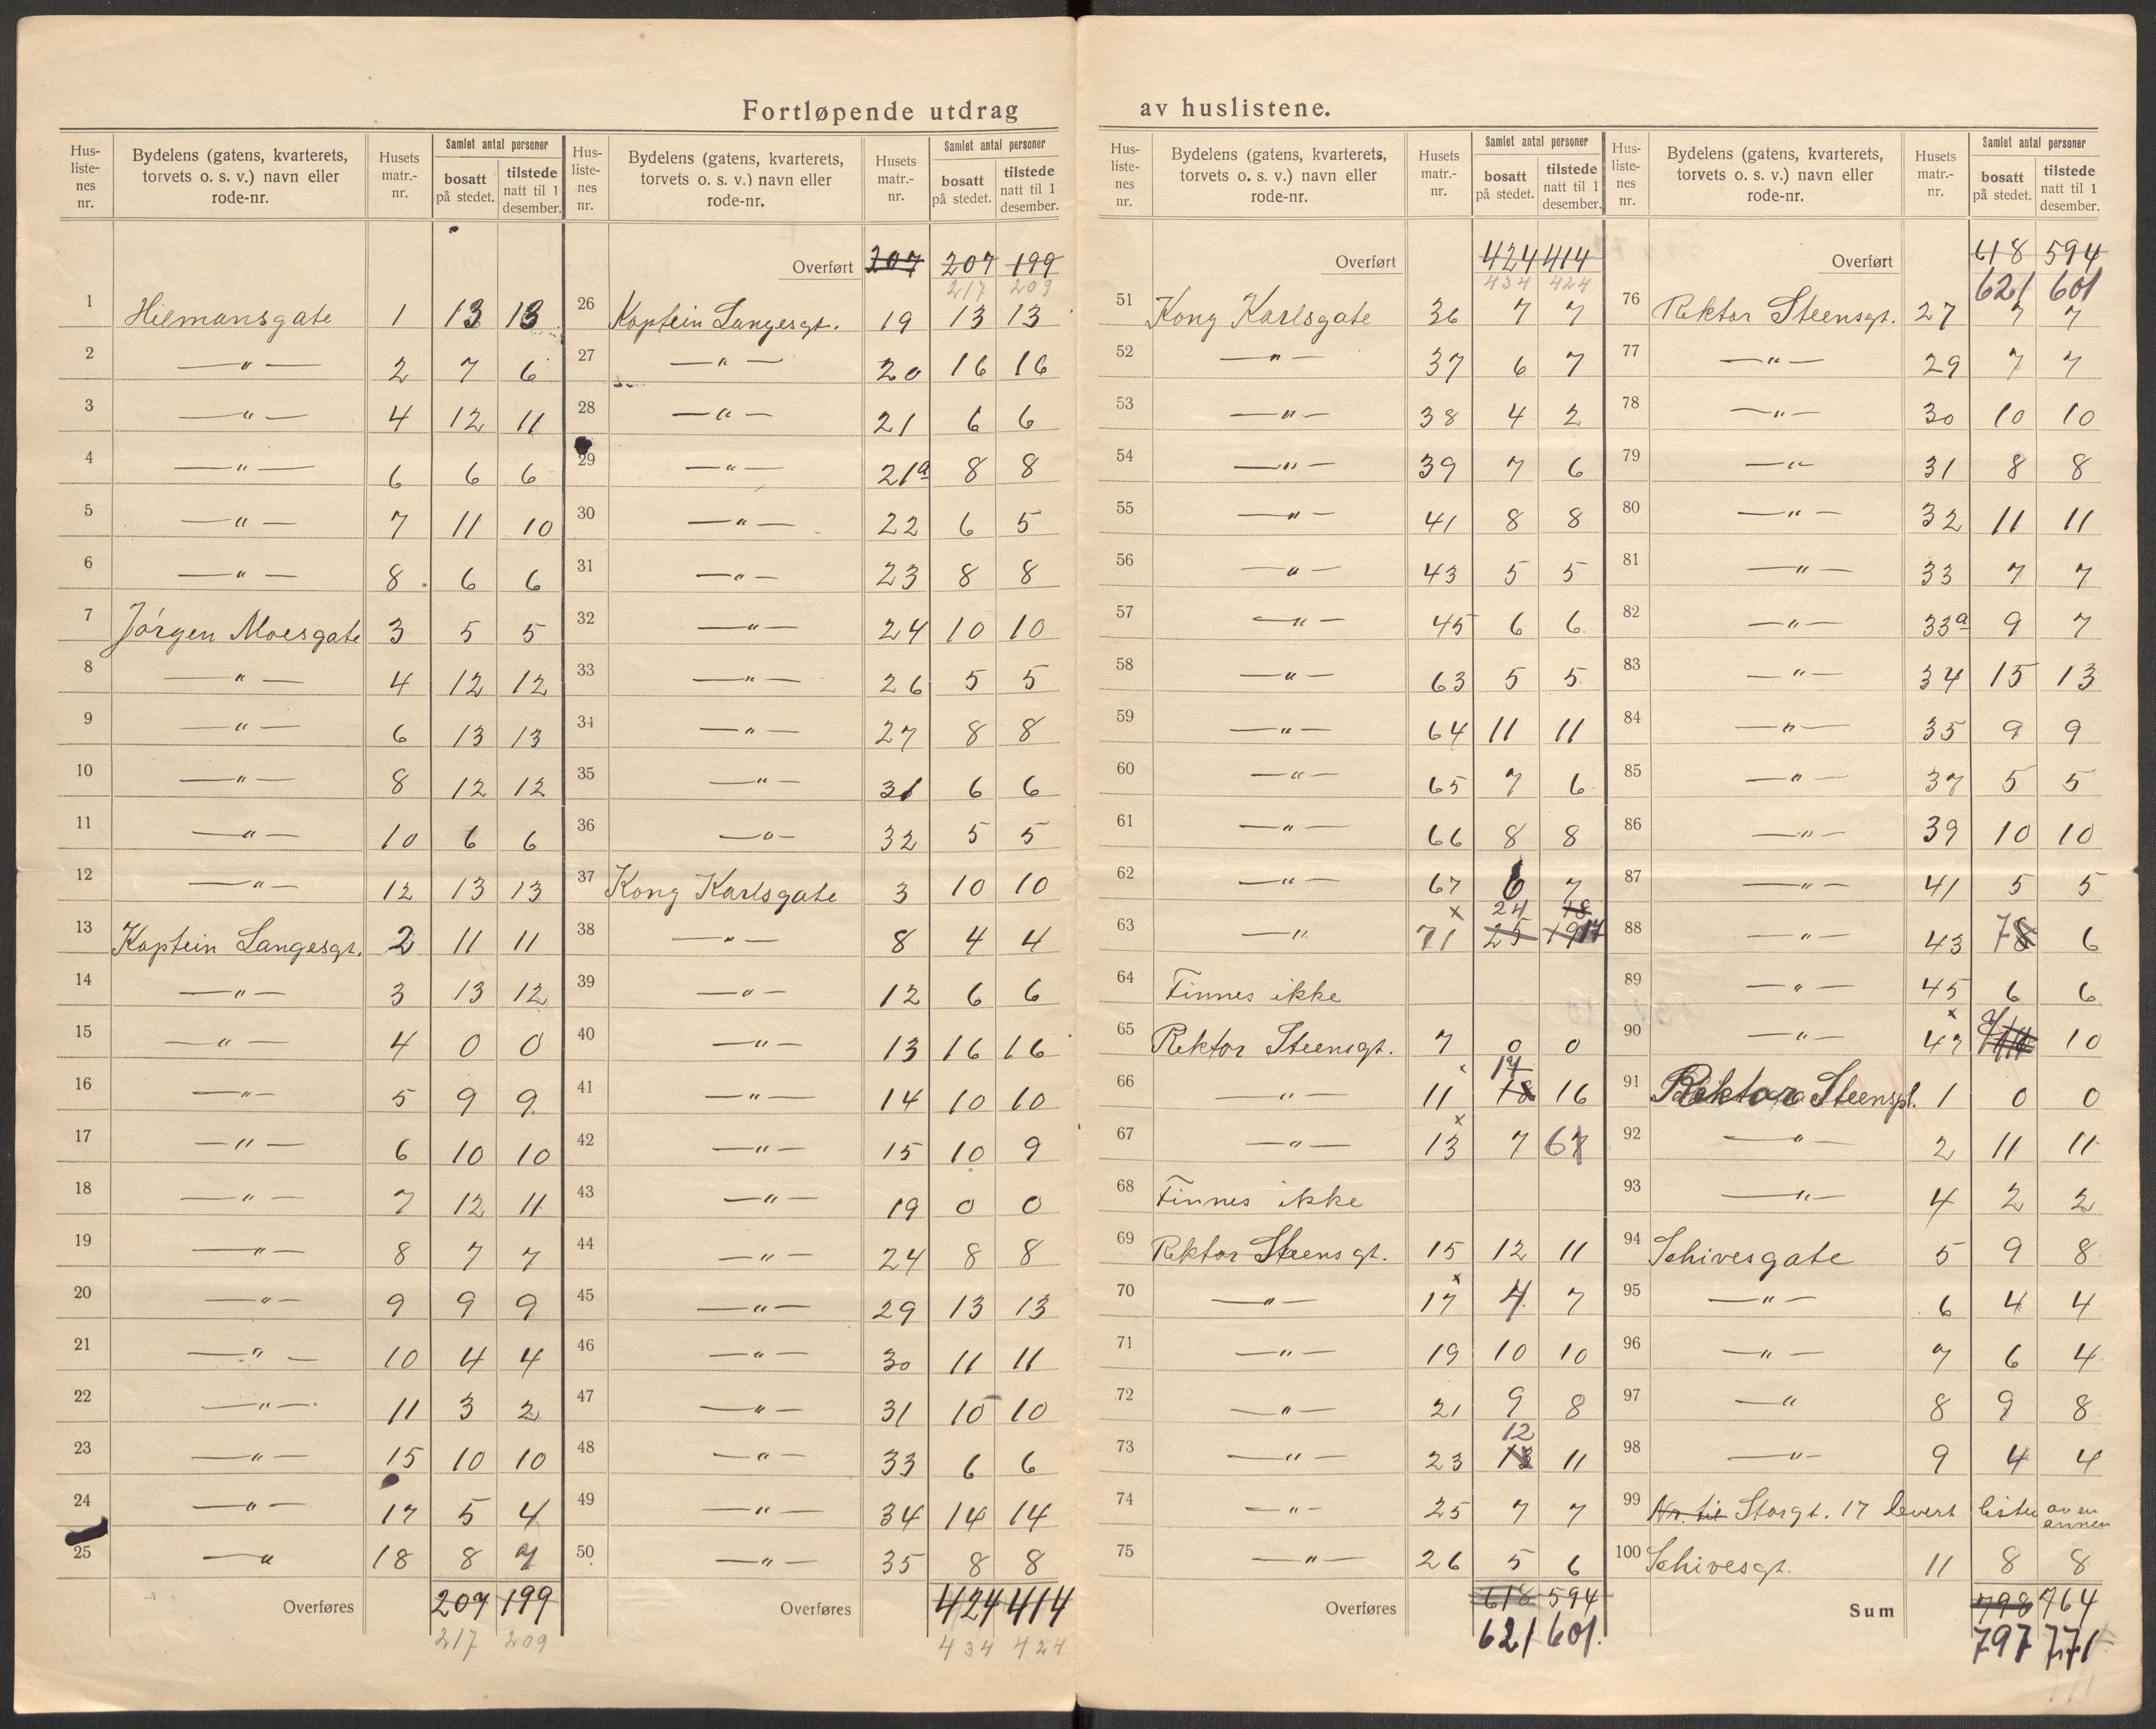 Fortløpende utdrag av huslistene.
Hus-listenes nr. | Bydelens (gatens, kvarterets, torvets o. s. v.) navn eller rode-nr. | Husets matr.-nr. | Samlet antal personer bosatt på stedet. | tilstede natt til 1 desember.
1 Hilmansgate 1 13 13
2 —"— 2 7 6
3 —"— 4 12 11
4 —"— 6 6 6
5 —"— 7 11 10
6 —"— 8 6 6
7 Jørgen Moesgate 3 5 5
8 —"— 4 12 12
9 —"— 6 13 13
10 —"— 8 12 12
11 —"— 10 6 6
12 —"— 12 13 13
13 Kaptein Langesgt. 2 11 11
14 —"— 3 13 12
15 —"— 4 0 0
16 —"— 5 9 9
17 —"— 6 10 10
18 —"— 7 12 11
19 —"— 8 7 7
20 —"— 9 9 9
21 —"— 10 4 4
22 —"— 11 3 2
23 —"— 15 10 10
24 —"— 17 5 4
25 —"— 18 8 7
Overføres 207 199
217 209
Hus-listenes nr. | Bydelens (gatens, kvarterets, torvets o. s. v.) navn eller rode-nr. | Husets matr.-nr. | Samlet antal personer bosatt på stedet. | tilstede natt til 1 desember.
Overført 207 207 199
217 209
26 Kaptein Langesgt. 19 13 13
27 —"— 20 16 16
28 —"— 21 6 6
29 —"— 21a 8 8
30 —"— 22 6 5
31 —"— 23 8 8
32 —"— 24 10 10
33 —"— 26 5 5
34 —"— 27 8 8
35 —"— 31 6 6
36 —"— 32 5 5
37 Kong Karlsgate 3 10 10
38 —"— 8 4 4
39 —"— 12 6 6
40 —"— 13 16 16
41 —"— 14 10 10
42 —"— 15 10 9
43 —"— 19 0 0
44 —"— 24 8 8
45 —"— 29 13 13
46 —"— 30 11 11
47 —"— 31 10 10
48 —"— 33 6 6
49 —"— 34 14 14
50 —"— 35 8 8
Overføres 424 414
434 424
Hus-listenes nr. | Bydelens (gatens, kvarterets, torvets o. s. v.) navn eller rode-nr. | Husets matr.-nr. | Samlet antal personer bosatt på stedet. | tilstede natt til 1 desember.
Overført 424 414
434 424
51 Kong Karlsgate 36 7 7
52 —"— 37 6 7
53 —"— 38 4 2
54 —"— 39 7 6
55 —"— 41 8 8
56 —"— 43 5 5
57 —"— 45 6 6
58 —"— 63 5 5
59 —"— 64 11 11
60 —"— 65 7 6
61 —"— 66 8 8
62 —"— 67 6 7
x 24 18
63 —"— 71 25 19 17
64 Finnes ikke
65 Rektor Steensgt. 7 0 0
x 17
66 —"— 11 18 16
x
67 —"— 13 7 67
68 Finnes ikke
69 Rektor Steensgt. 15 12 11
x
70 —"— 17 4 7
71 —"— 19 10 10
72 —"— 21 9 8
12
73 —"— 23 13 11
74 —"— 25 7 7
75 —"— 26 5 6
Overføres 618 594
621 601.
Hus-listenes nr. | Bydelens (gatens, kvarterets, torvets o. s. v.) navn eller rode-nr. | Husets matr.-nr. | Samlet antal personer bosatt på stedet. | tilstede natt til 1 desember.
Overført 618 594
621 601
76 Rektor Steensgt. 27 7 7
77 —"— 29 7 7
78 —"— 30 10 10
79 —"— 31 8 8
80 —"— 32 11 11
81 —"— 33 7 7
82 —"— 33a 9 7
83 —"— 34 15 13
84 —"— 35 9 9
85 —"— 37 5 5
86 —"— 39 10 10
87 —"— 41 5 5
88 —"— 43 78 6
89 —"— 45 6 6
x
90 —"— 47 10
91 Rektor Steenspl. 1 0 0
92 —"— 2 11 11
93 —"— 4 2 2
94 Schivesgate 5 9 8
95 —"— 6 4 4
96 —"— 7 6 4
97 —"— 8 9 8
98 —"— 9 4 4
99 Nr. til Storgt. 17 levert listen av en annen
100 Schivesgt. 11 8 8
Sum 798 764
797 771